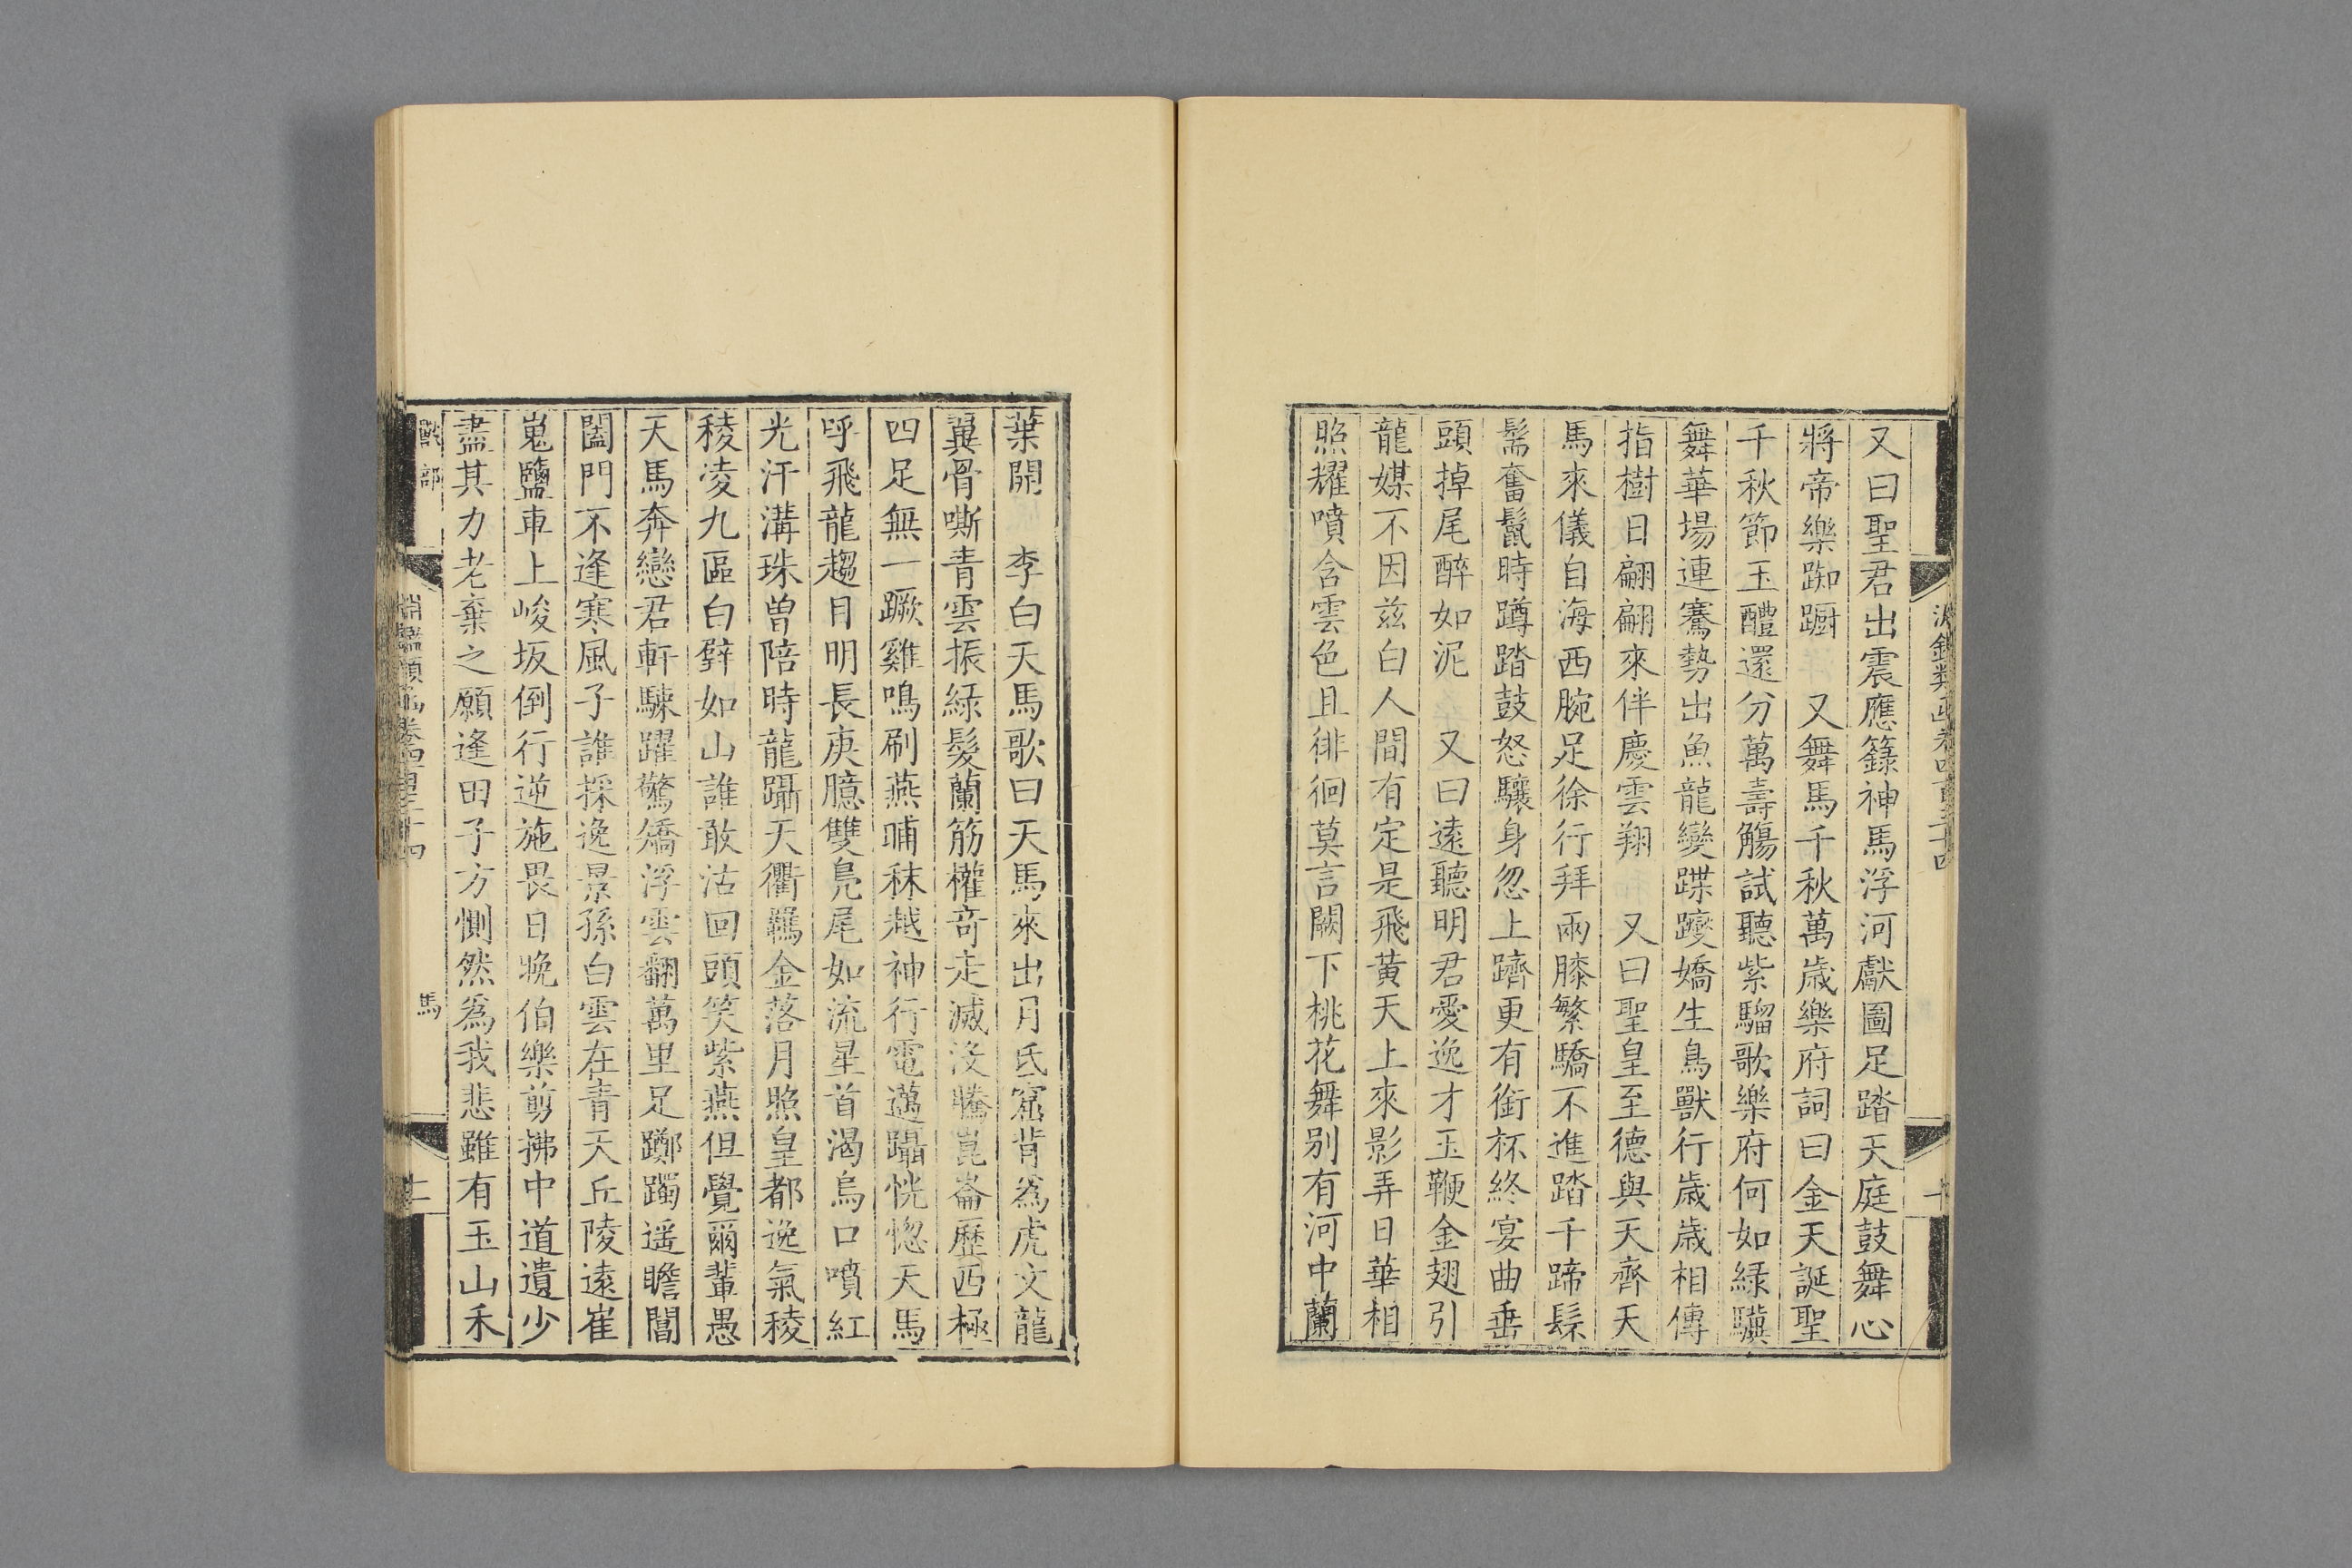 又曰聖君出震應籙神馬浮河獻圖足踏天庭鼓舞心
將帝樂踟躕　又舞馬千秋萬歲樂府詞曰金天誕聖
千秋節玉醴還分萬壽觴試聽紫騮歌樂府何如綠驥
舞華塲連騫勢出魚龍變蹀躞嬌生鳥獸行歲歲相傳
指樹日翩翩來伴慶雲翔　又曰聖皇至德與天齊天
馬來儀自海西腕足徐行拜兩膝繁驕不進踏千蹄髹
髵奮鬛時蹲踏鼓怒驤身忽上躋更有銜杯終宴曲垂
頭掉尾醉如泥　又曰遠聽明君愛逸才玉鞭金翅引
龍媒不因兹白人間有定是飛黃天上來影弄日華相
照耀噴含雲色且徘徊莫言闕下桃花舞别有河中蘭
葉開　李白天馬歌曰天馬來出月氏窟背爲虎文龍
翼骨嘶青雲振綠髮蘭筋權奇走滅沒騰崑崙歷西極
四足無一蹶雞鳴刷燕晡秣越神行電邁躡恍惚天馬
呼飛龍趨目明長庚臆雙鳧尾如流星首渴烏口噴紅
光汗溝珠曾陪時龍躡天衢羈金落月照皇都逸氣稜
稜凌九區白璧如山誰敢沽回頭笑紫燕但覺爾輩愚
天馬奔戀君軒駷躍驚矯浮雲翻萬里足躑躅遥瞻閶
闔門不逢寒風子誰採逸景孫白雲在青天丘陵遠崔
嵬鹽車上峻坂倒行逆施畏日晚伯樂剪拂中道遺少
盡其力老棄之願逢田子方惻然爲我悲雖有玉山禾
獸部
淵鑑類函卷四百三十四
馬